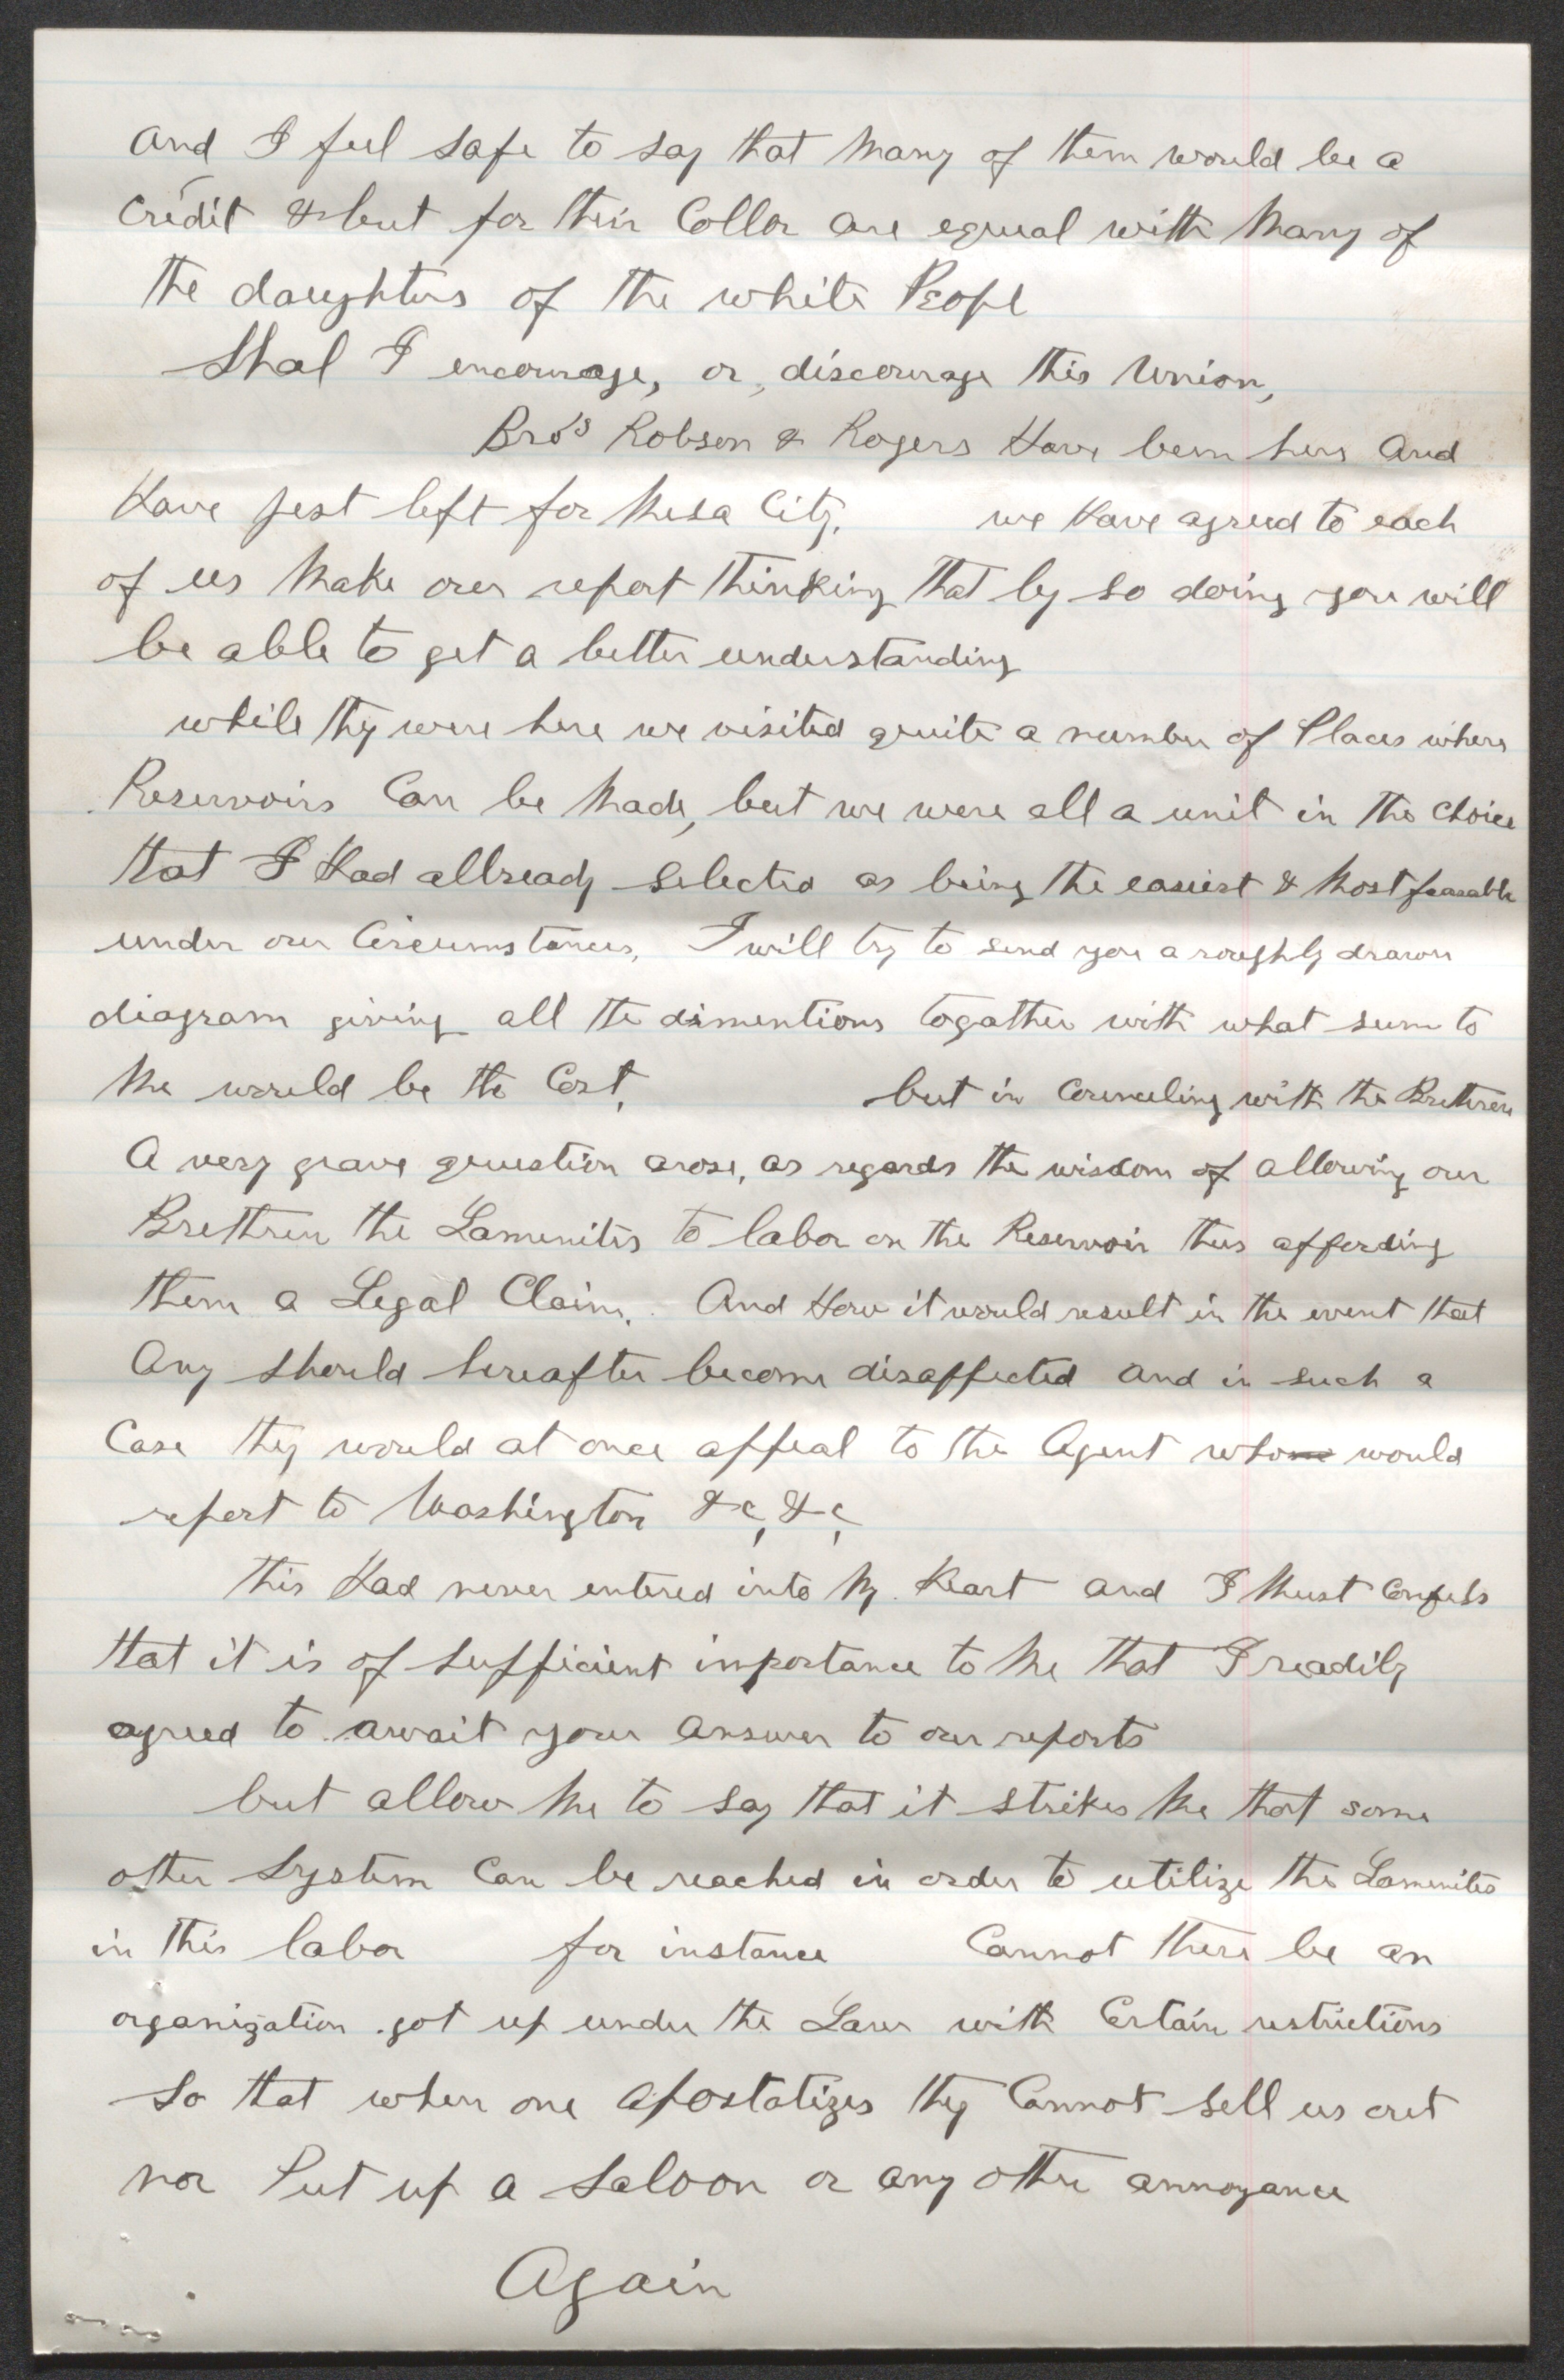 And I feel safe to say that Many of them would be a
Credit & but for thir Collor are equal with Many of
the daughters of the white Peopl
Shal I encourage, or, discourage this Union,
Bro's Robson & Rogers Have been here And
Have jest left for Mesa City. we Have agreed to each
of us Make our report thinking that by so doing you will
be able to get a better understanding
while thy were here we visited quite a number of Places where
Reservoirs Can be Made, but we were all a unit in the choice
that I Had allready selected as being the easiest & Most feasable
under our Circumstances, I will try to send you a roughly drawn
diagram giving all the dimentions togather with what seem to
Me would be the Cost, but in Counceling with the Bretheren
A very grave question arose, as regards the wisdom of allowing our
Brethren the Lamenites to labor on the Reservoir thus affording
them a Legal Claim. And How it would result in the event that
Any should hereafter become disaffected and in such a
Case they would at once appeal to the Agent whome would
report to Washington &c, &c,
this Had never entered into My Heart and I Must Confess
that it is of sufficient importance to Me that I readily
agreed to await your Answer to our reports
but allow Me to say that it strikes Me that some
other System Can be reached in order to utilize the Lamenites
in this labor for instance Cannot there be an
organization got up under the Law with Certain restrictions
So that when one apostatizes they Cannot sell us out
nor Put up a Saloon or any other annoyance
Again